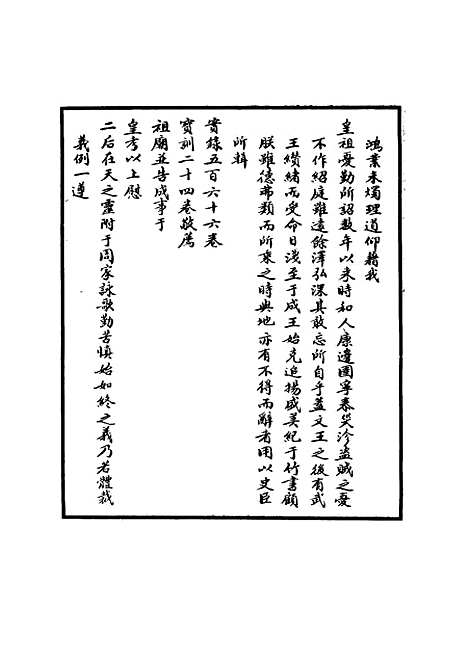 鴻業未燭理道仰藉我
皇祖憂勤所詒數年以來時和人康邊圉寧泰災沴盜賊之憂
不作紹庭雖遠餘澤弘深其敢忘所自乎蓋文王之後有武
王纘緒而受命日淺至于成王始克追揚盛美紀于竹書顧
朕雖德弗類而所乘之時與地亦有不得而辭者用以史臣
所輯
實錄五百六十六卷
寶訓二十四卷敬薦
祖廟並告成事于
皇考以上慰
二后在天之靈附于周家詠歌勤苦慎始如終之義乃若體裁
義例一遵